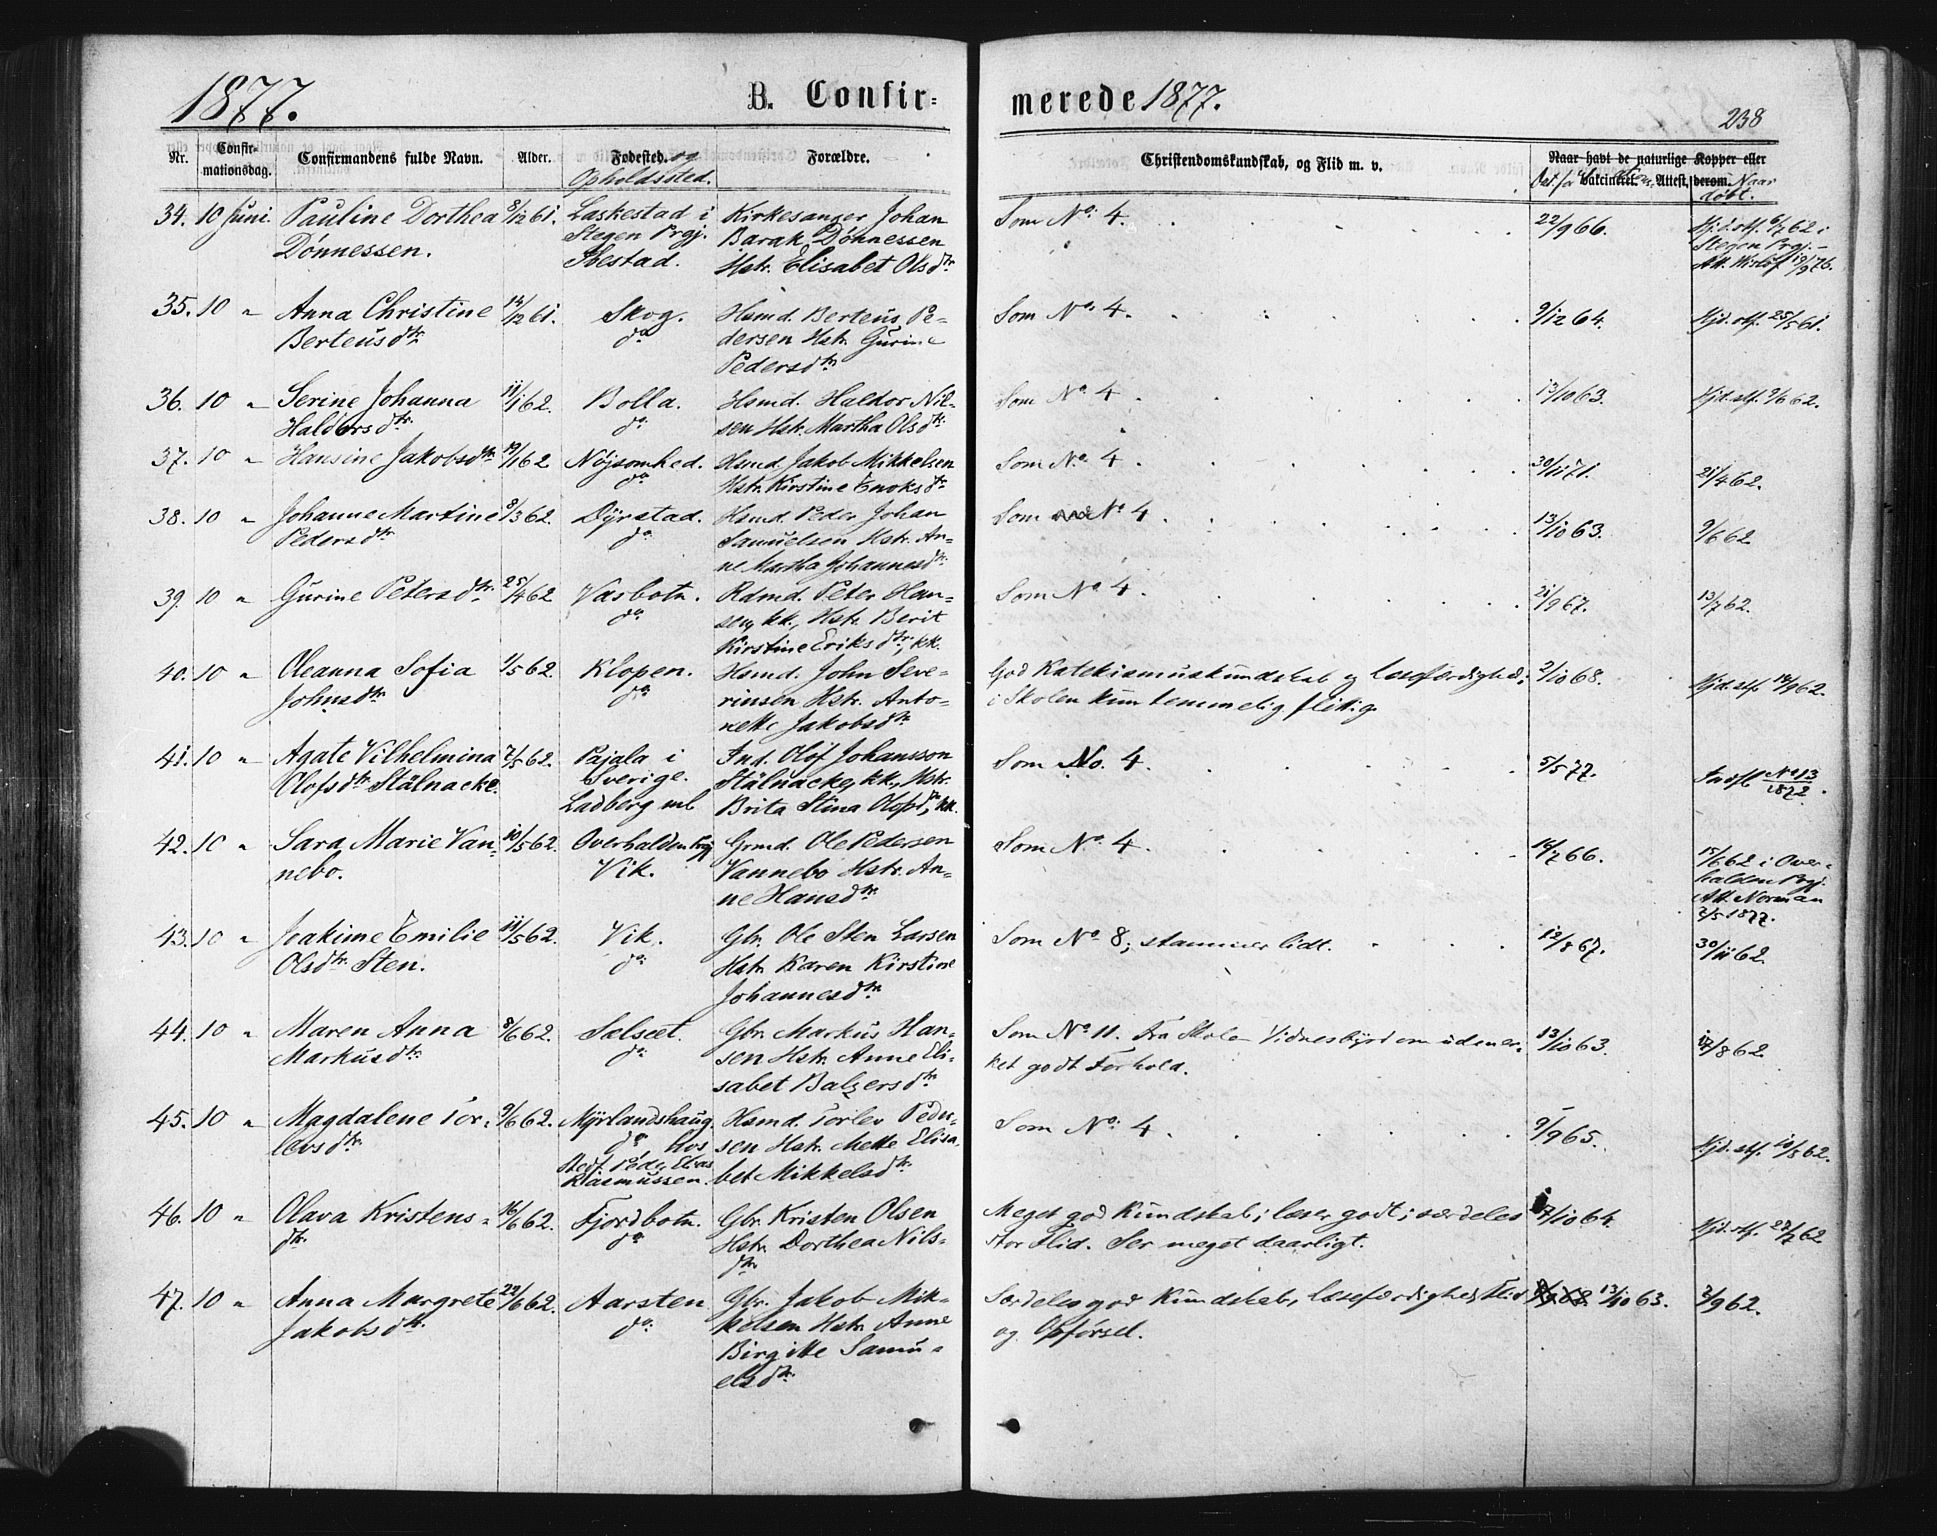 1877. B. Confir- merede 1877.
238
Nr. Confir-mationsdag. Confirmandens fulde Navn. Alder. Fødested. og Opholdssted. Forældre. Christendomskundskab, og Flid m. v. Naar havt de naturlige Kopper eller Vakcineret. Attest derom. Naar døbt.
34. 10 Juni. Pauline Dorthea 8/12 61. Laskestad i Kirkesanger Johan Som No. 4. 22/9 66. Hjd. stf. 6/7 62 i
Dønnessen. Stegen Prgj. Barak Dønnessen Stegen Prgj.
Ibestad. Hstr. Elisabet Olsdtr.
35. 10 " Anna Christine 14/12 61. Skog. Hsmd. Berteus Pe- Som No. 4. 9/12 64. Hjd. stf.
Berteusdtr. do. dersen Hstr. Gurine
Pedersdtr.
36. 10 " Serine Johanna 11/1 62. Bolla. Hsmd. Haldor Nil- Som No. 4 13/10 63. Hjd. stf. 9/6 62.
Haldorsdtr. do. sen Hstr. Martha Olsdtr.
37. 10 " Hansine Jakobsdtr. 19/1 62 Nøjsomhed. Hsmd. Jakob Mikkelsen Som No. 4 30/11 71. 21/4 62.
do. Hstr. Kirstine Enoksdtr.
38. 10 " Johanne Martine 8/3 62. Dyrstad. Hsmd. Peder Johan Som No 4. 13/10 63. 9/6 62
Pedersdtr. do. Samuelsen Hstr. An-
ne Martha Johannesdtr.
39. 10 " Gurine Petersdtr. 25/4 62 Vasbotn. Rdmd. Peter Han- Som No. 4 21/9 67. 13/7 62.
do. sen, kk., Hstr. Berit
Kirstine Eriksdtr., kk.
40. 10 " Oleanna Sofia 1/5 62. Klopen. Hsmd. John Seve- God Katekismuskundskab og Læsefærdighed; 2/10 68. Hjd. stf. 14/9 62.
Johnsdtr. do. rinsen Hstr. Anto- i Skolen kun temmelig flittig.
nette Jakobsdtr.
41. 10 " Agate Vilhelmina 7/5 62. Pajala i Ind. Olof Johansson Som No. 4. 5/5 77. Indfl. No 13/1872.
Olofsdtr. Stälnacke. Sverige. Stälnacke, kk., Hstr.
Ladberg Brita Stina Olofsd., kk.
42. 10 " Sara Marie Van- 10/5 62. Overhalden Prgj. Grmd. Ole Pedersen Som No. 4. 14/7 66. 15/6 62 i Over-
nebo. Vik. Vannebo Hstr. An- halden Prgj.
ne Hansdtr. Att. Norman
2/5 1877.
43. 10 " Joakime Emilie 11/5 62. Vik. Gbr. Ole Sten Larsen Som No. 8; stammer lidt. 12/8 67. 30/11 62.
Olsdtr. Sten. do. Hstr. Karen Kirstine
Johannesdtr.
44. 10 " Maren Anna 8/6 62. Sælsæt. Gbr. Markus Han- Som No. 11. Fra Skolen Vidnesbyrd om udmær- 13/10 63. 17/8 62
Markusdtr. do. sen Hstr. Anne Eli- ket godt Forhold.
sabet Balzersdtr.
45. 10 " Magdalene Tor- 9/6 62. Myrlandshaug Hsmd. Torlev Peder- Som No. 4 9/9 65. Hjd. stf. 10/8 62.
levsdtr. do., hos sen Hstr. Mette Elisa-
Peder Elias Rasmussen. bet Mikkelsdtr.
46. 10 " Olava Kristens- 16/6 62. Fjordbotn. Gbr. Kristen Olsen Meget god Kundskab; læser godt; særdeles /10 64. Hjd. stf. 27/7 62
dtr. do. Hstr. Dorthea Nils- stor Flid. Ser meget daarligt.
dtr.
47. 10 " Anna Margrete 22/6 62. Aarsten Gbr. Jakob Mik- Særdeles god Kundskab, Læsefærdighed, Flid 13/10 63. 3/9 62.
Jakobsdtr. do. kelsen Hstr. Anne og Opførsel.
Birgitte Samu-
elsdtr.